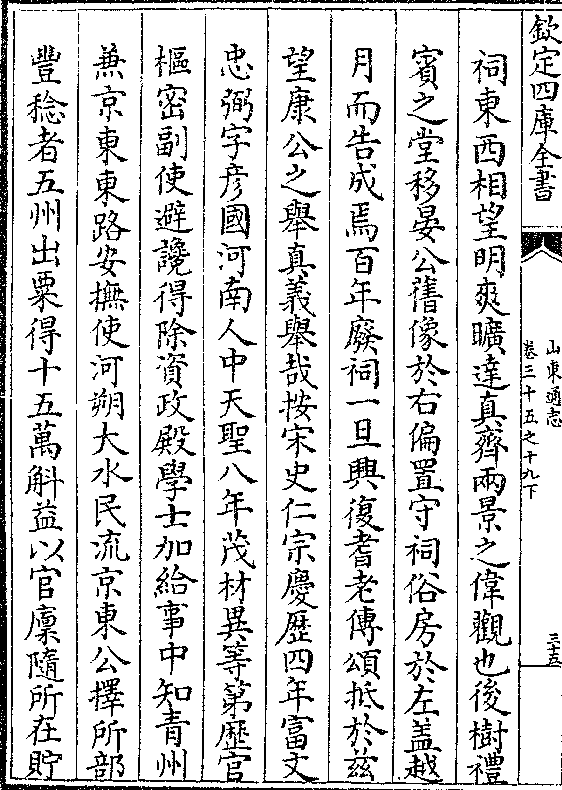 欽定四庫全書
山東通志
卷三十五之十九下
三十五
祠東西相望明爽曠達真齊兩景之偉觀也後樹禮
賓之堂移晏公舊像於右偏置守祠俗房於左盖越
月而告成焉百年廢祠一旦興復耆老傳頌抵於兹
望康公之舉真義舉哉按宋史仁宗慶歴四年富文
忠弼字彦國河南人中天聖八年茂材異等第歴官
樞密副使避讒得除資政殿學士加給事中知青州
兼京東東路安撫使河朔大水民流京東公擇所部
豐稔者五州出粟得十五萬斛益以官廪隨所在貯